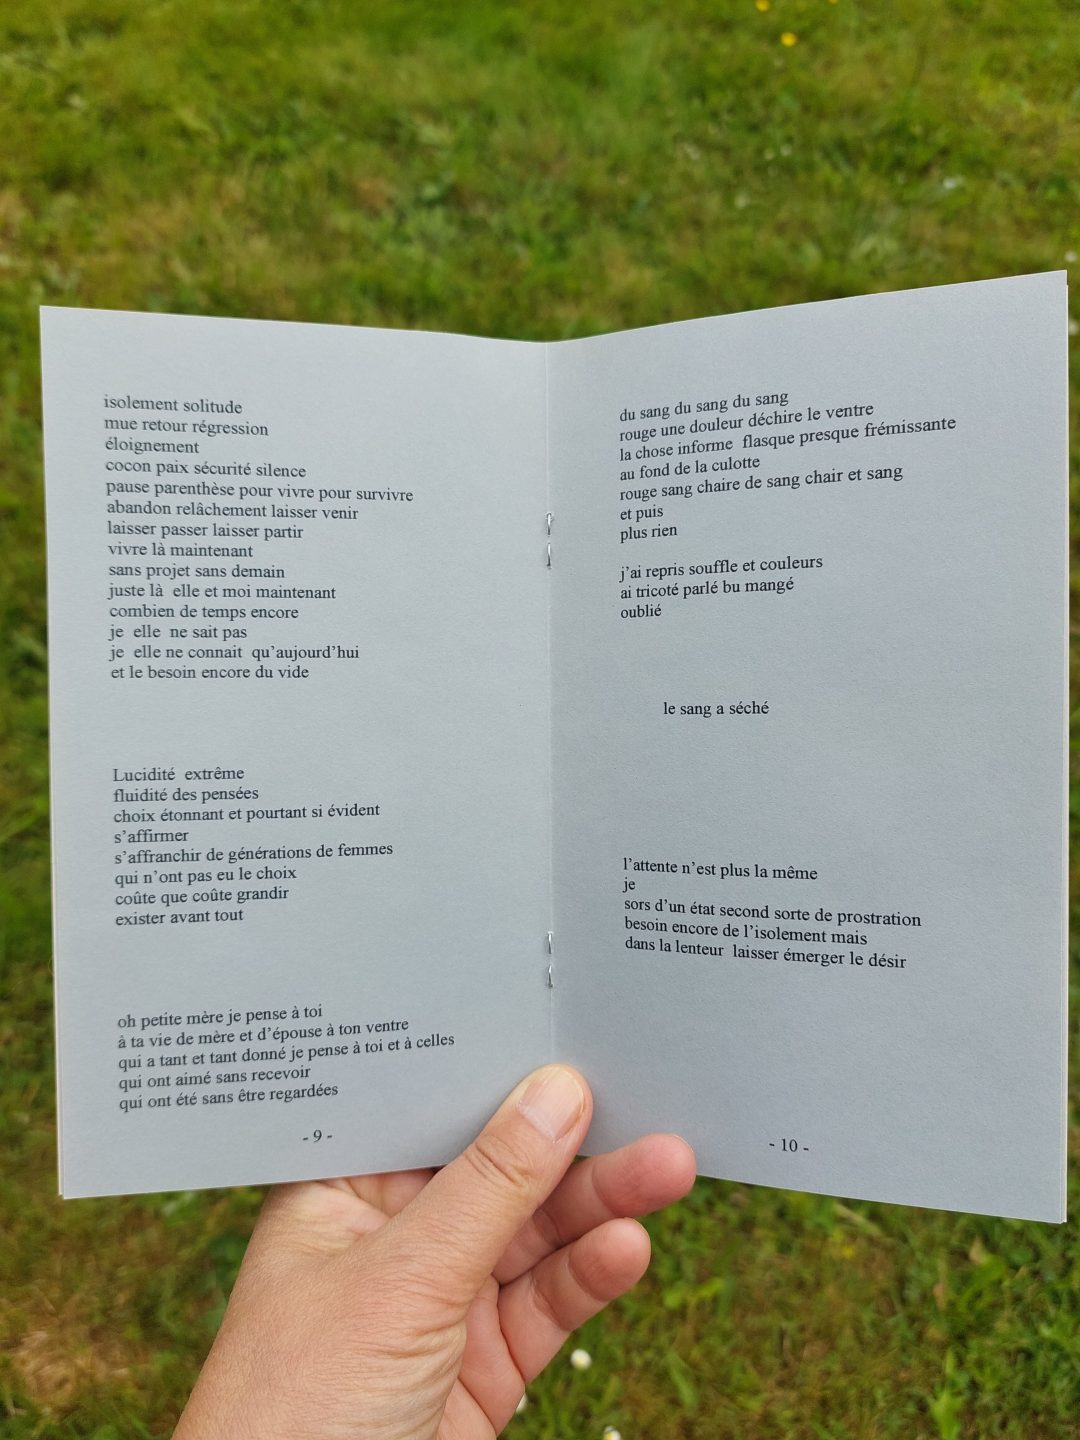 isolement solitude
mue retour régression
éloignement
cocon paix sécurité silence
pause parenthèse pour vivre pour survivre
abandon relâchement laisser venir
laisser passer laisser partir
vivre là maintenant
sans projet sans demain
juste là  elle et moi maintenant
combien de temps encore
je  elle  ne sait pas
je  elle ne connait  qu’aujourd’hui
et le besoin encore du vide
Lucidité  extrême
fluidité des pensées
choix étonnant et pourtant si évident
s’affirmer
s’affranchir de générations de femmes
qui n’ont pas eu le choix
coûte que coûte grandir
exister avant tout
oh petite mère je pense à toi
à ta vie de mère et d’épouse à ton ventre
qui a tant et tant donné je pense à toi et à celles
qui ont aimé sans recevoir
qui ont été sans être regardées
- 9 -
du sang du sang du sang
rouge une douleur déchire le ventre
la chose informe  flasque presque frémissante
au fond de la culotte
rouge sang chaire de sang chair et sang
et puis
plus rien
j’ai repris souffle et couleurs
ai tricoté parlé bu mangé
oublié
le sang a séché
l’attente n’est plus la même
je
sors d’un état second sorte de prostration
besoin encore de l’isolement mais
dans la lenteur  laisser émerger le désir
- 10 -